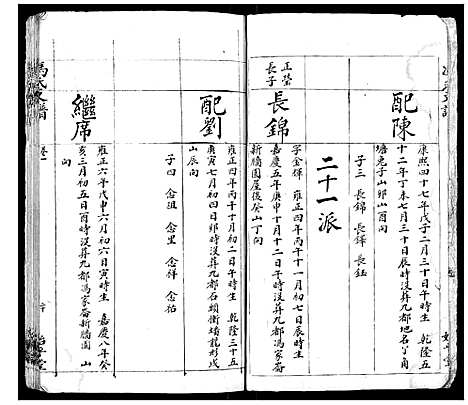 配陳
康熙四十七年戊子二月三十日午時生 乾隆五
十二年丁未七月三十日辰時没葬九都地名丫角
塘兔子山卯山酉向
子三 長錦 長鐸 長鈺
二十一派
正瑩
長子
長錦
字金鐸 雍正四年丙午十一月初七日辰時生
嘉慶五年庚申十月十二日午時没葬九都馮家
新牆園屋後癸山丁向
配劉
雍正四年丙午十月初二日午時生 乾隆三十五
庚寅七月初四日卯時没葬九都石頭衝墈龍形戌
山辰向
子四 念沮 念里 念鐸 念祐
繼席
雍正六年戊申六月初六日寅時生 嘉慶八年癸
亥三月初五日酉時没葬九都馮家崙新牆園 山
向
馮氏支譜
卷